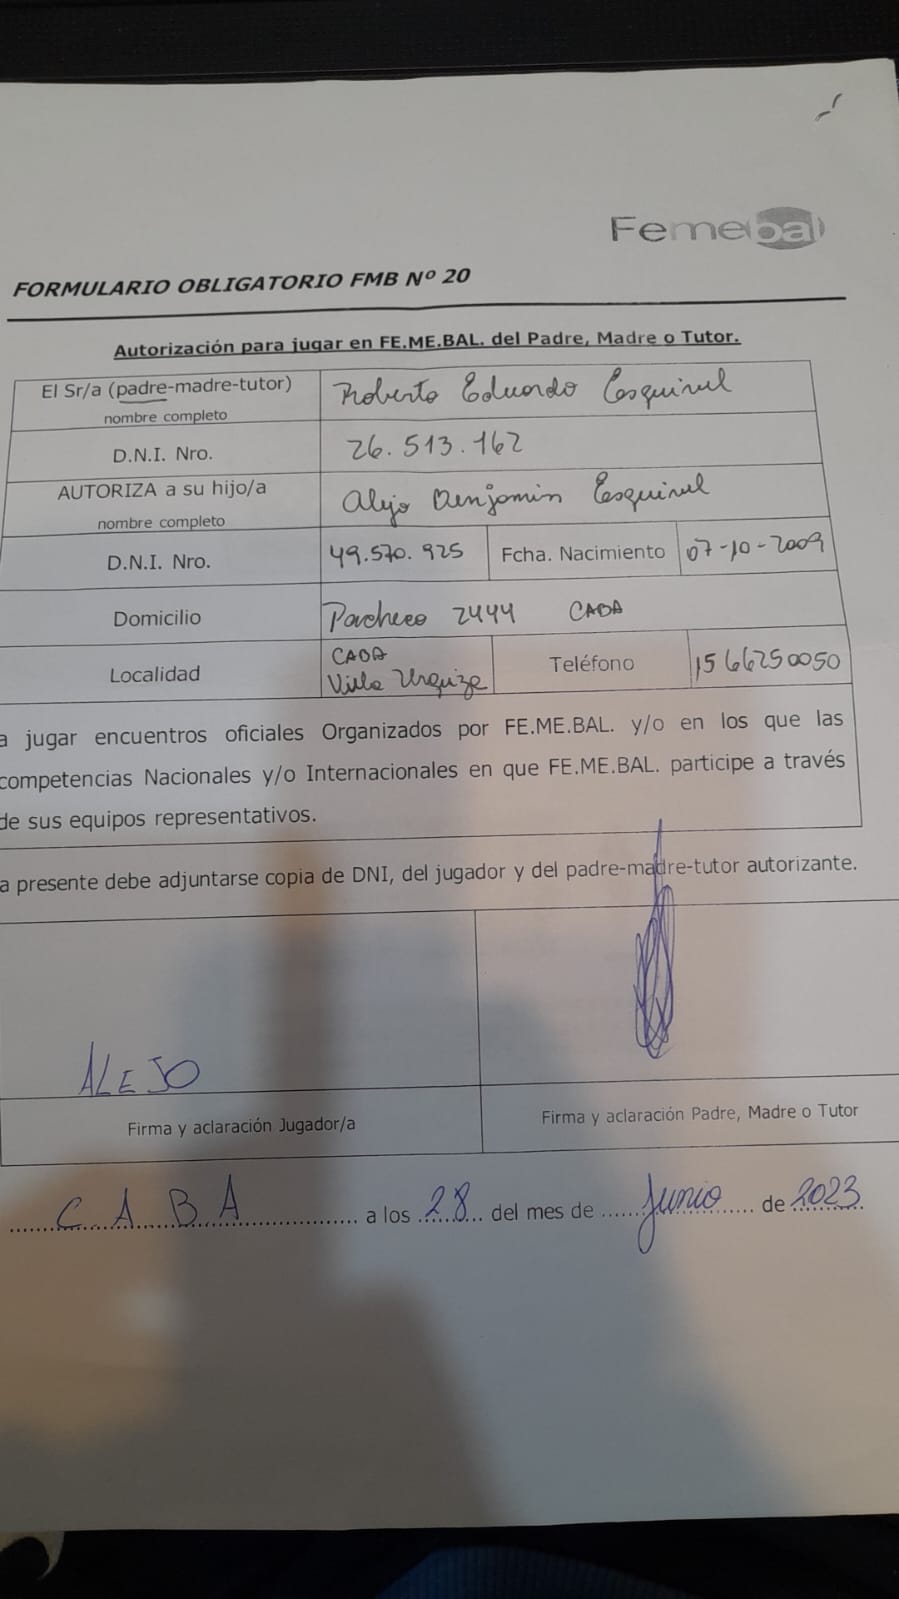 Femebal
FORMULARIO OBLIGATORIO FMB Nº 20
Autorización para jugar en FE.ME.BAL. del Padre, Madre o Tutor.
El Sr/a (padre-madre-tutor) Roberto Eduardo Esquivel
nombre completo
D.N.I. Nro. 26.513.162
AUTORIZA a su hijo/a Alejo Benjamin Esquivel
nombre completo
D.N.I. Nro. 49.570.925 Fcha. Nacimiento 07-10-2009
Domicilio Pacheco 2444 CABA
Localidad CABA Villa Urquiza Teléfono 1566250050
a jugar encuentros oficiales Organizados por FE.ME.BAL. y/o en los que las
competencias Nacionales y/o Internacionales en que FE.ME.BAL. participe a través
de sus equipos representativos.
a presente debe adjuntarse copia de DNI, del jugador y del padre-madre-tutor autorizante.
ALEJO
Firma y aclaración Jugador/a Firma y aclaración Padre, Madre o Tutor
CABA a los 28 del mes de Junio de 2023